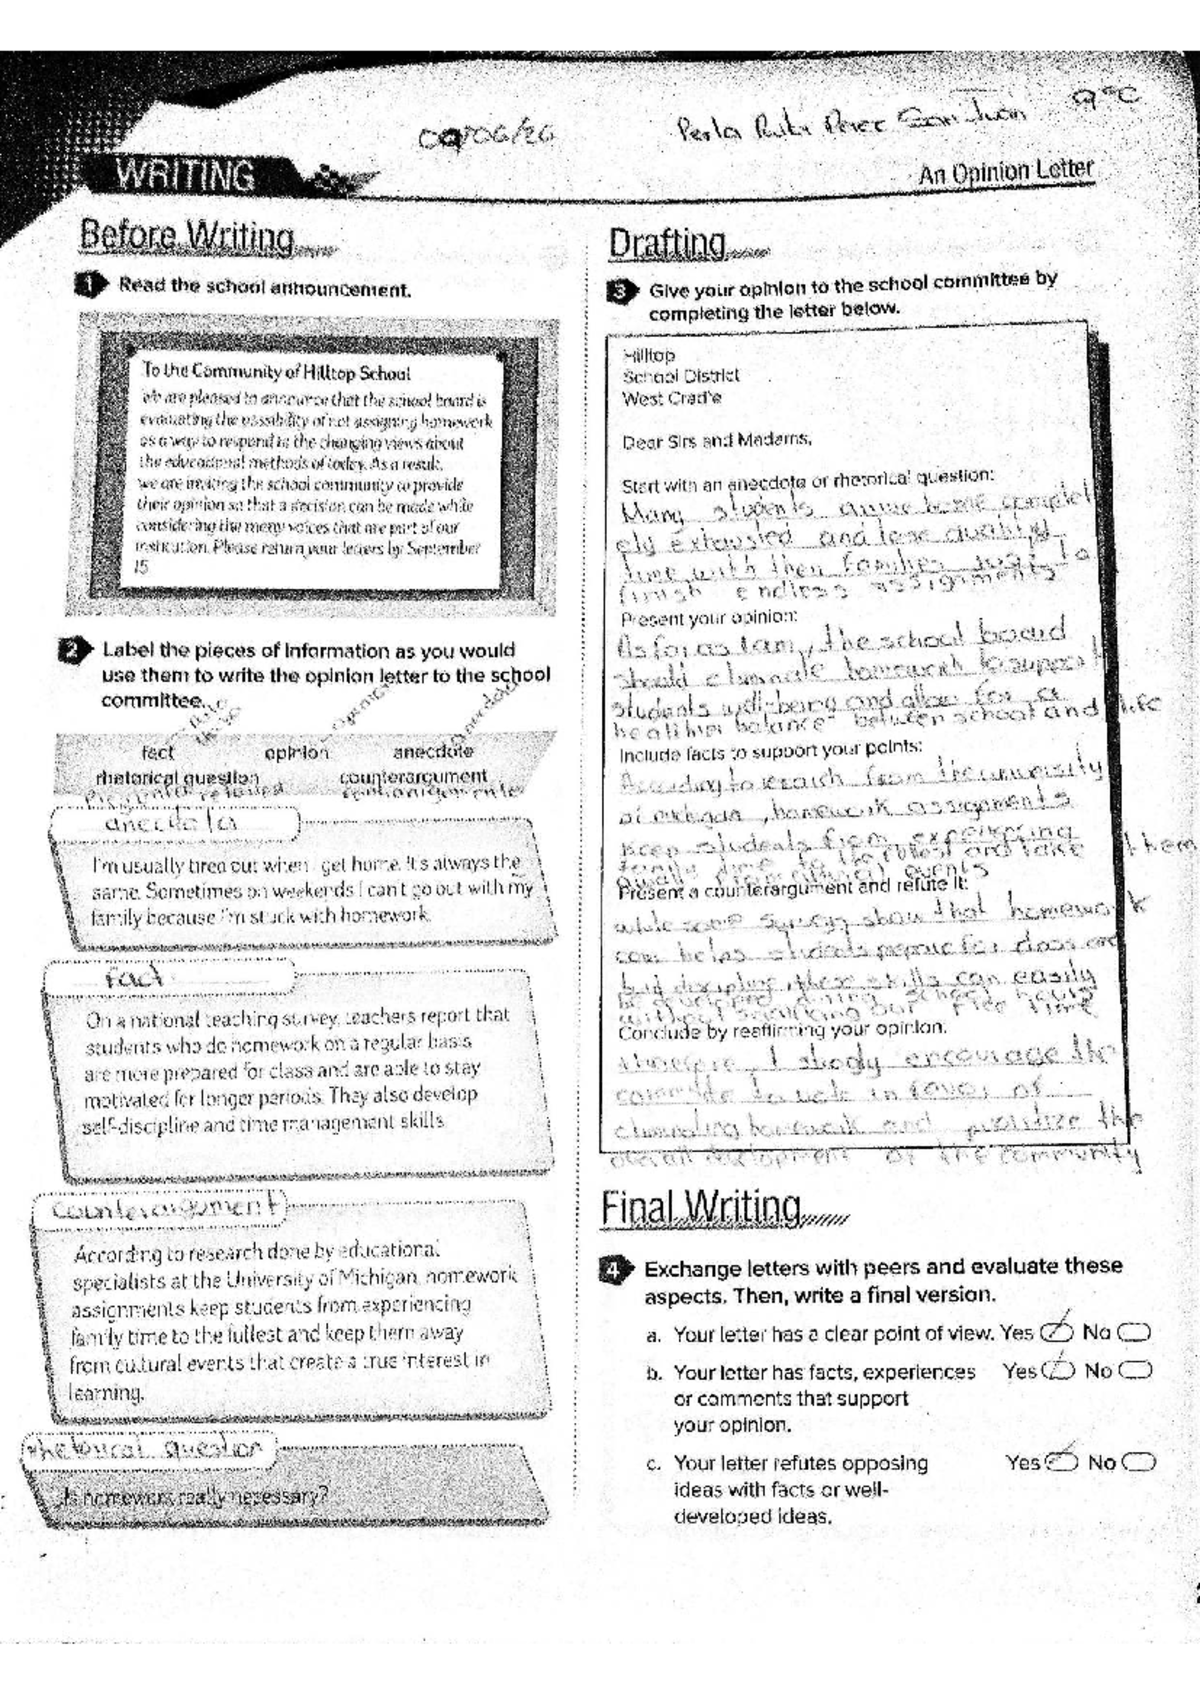 09/06/26
Perla Rubi Perez San Juan 9°C
WRITING
An Opinion Letter
Before Writing
1 Read the school announcement.
To the Community of Hilltop School
We are pleased to announce that the school board is
evaluating the possibility of not assigning homework
as a way to respond to the changing views about
the educational methods of today. As a result,
we are inviting the school community to provide
their opinion so that a decision can be made while
considering the many voices that are part of our
institution. Please return your letters by September
15
2 Label the pieces of information as you would
use them to write the opinion letter to the school
committee.
fact opinion anecdote
rhetorical question counterargument
anecdota
I'm usually tired out when I get home. It's always the
same. Sometimes on weekends I can't go out with my
family because I'm stuck with homework.
fact
On a national teaching survey, teachers report that
students who do homework on a regular basis
are more prepared for class and are able to stay
motivated for longer periods. They also develop
self-discipline and time management skills.
counterargument
According to research done by educational
specialists at the University of Michigan, homework
assignments keep students from experiencing
family time to the fullest and keep them away
from cultural events that create a true interest in
learning.
rhetorical question
Is homework really necessary?
Drafting
3 Give your opinion to the school committee by
completing the letter below.
Hilltop
School District
West Cradle
Dear Sirs and Madams,
Start with an anecdote or rhetorical question:
Many students home complet
ely exhausted and lose quality
time with their families just to
finish endless assignments
Present your opinion:
As for as I am, the school board
should eliminate homework to support
students well-being and allow for a
healthier balance between school and life
Include facts to support your points:
According to reseach from the university
of michigan, homework assignments
keep students from experiencing
family time to the fullest and take them
events
Present a counterargument and refute it:
while some surveys show that homework
can helps students prepare for class and
build discipline, these skills can easily
be developed during school hours
without sacrificing our free time
Conclude by reaffirming your opinion:
therefore, I strogly encourage the
committe to vote in favor of
eliminating homework and prioritize the
overall development of the community
Final Writing
4 Exchange letters with peers and evaluate these
aspects. Then, write a final version.
a. Your letter has a clear point of view. Yes No
b. Your letter has facts, experiences Yes No
or comments that support
your opinion.
c. Your letter refutes opposing Yes No
ideas with facts or well-
developed ideas.